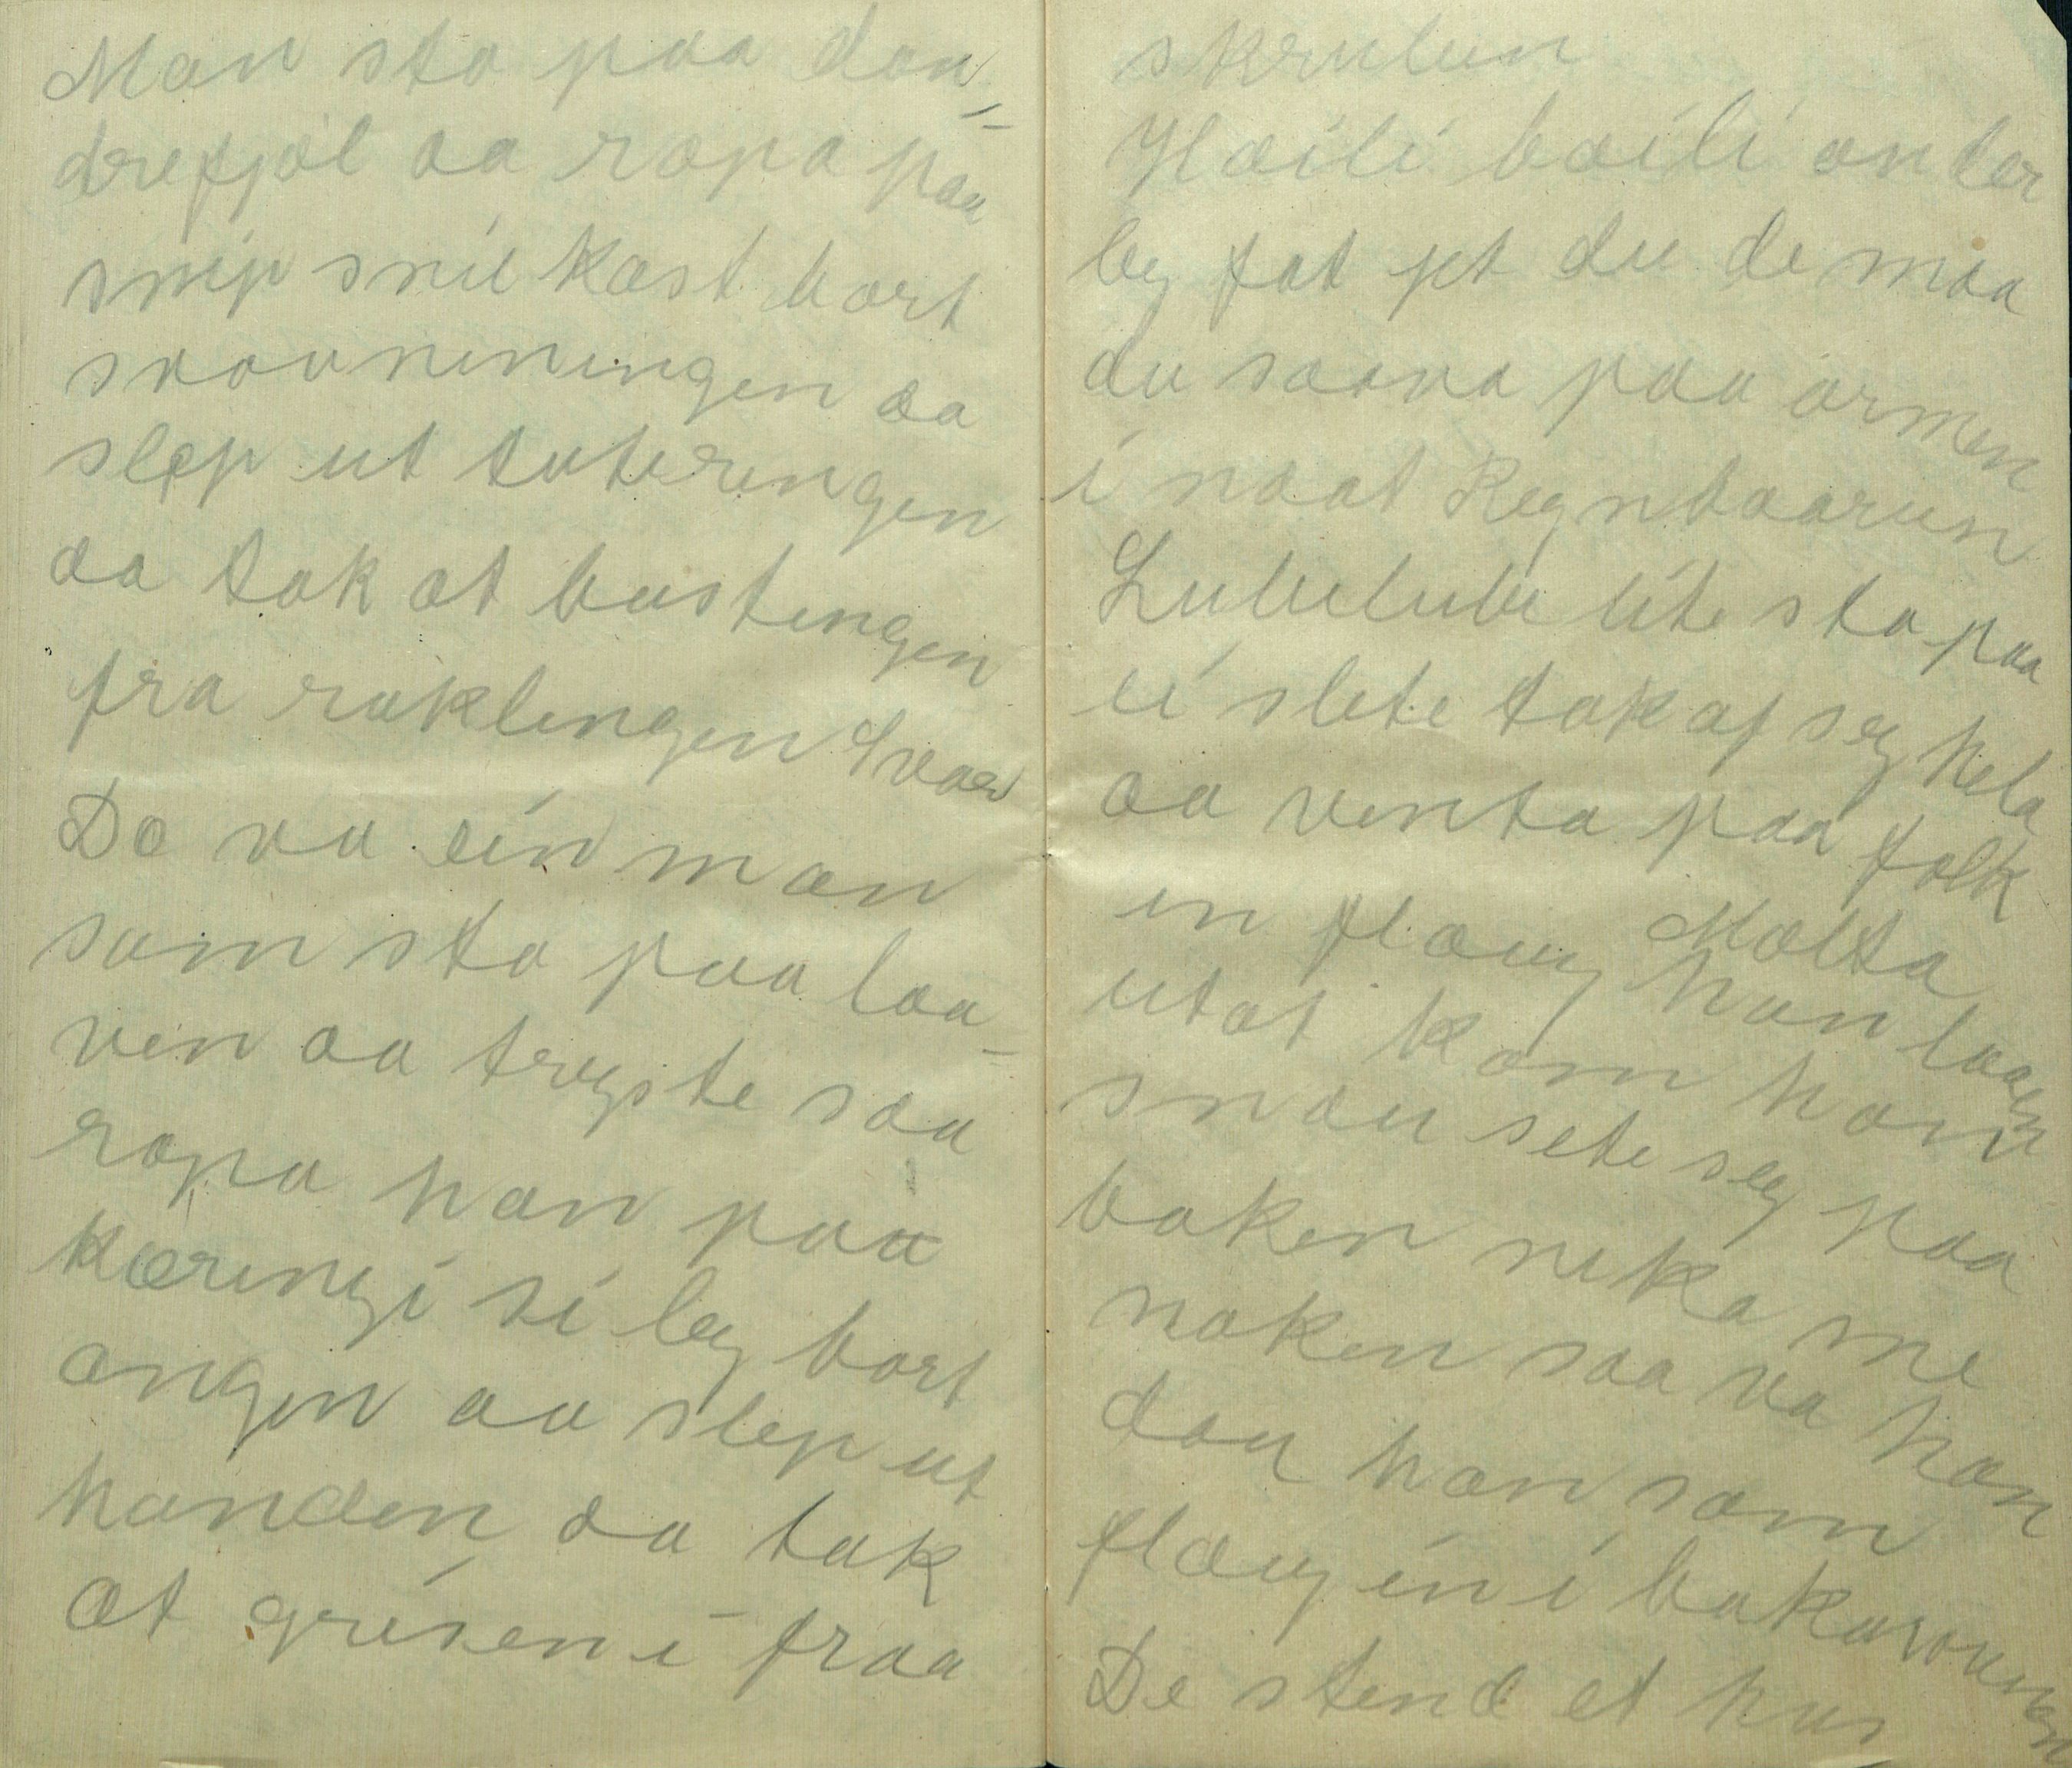 Man sto paa don-
drefjøl aa ropa paa
snip snil kast bort
svovneningen aa
slep ut tuteringen
aa tak at bustingen
fra raklingen Svar
De va ein man
som sto paa laa-
ven aa trysste saa
ropa han paa
kæringi si leg bort
ongen aa slep ut
hunden aa tak
at griseni fraa
skrulun
Hæili bæili onder
leg fot pt du de maa
du saava paa armen
i naat Regnbaarun
Lubelube lite sto paa
ei slete tok af seg hela
aa venta paa folk
en flaug Molta
utat kom han laagen
snau sete seg paa han
baken neka me
naken saa va han
dau han som
flaug in i bakarovnen
De stend et hus